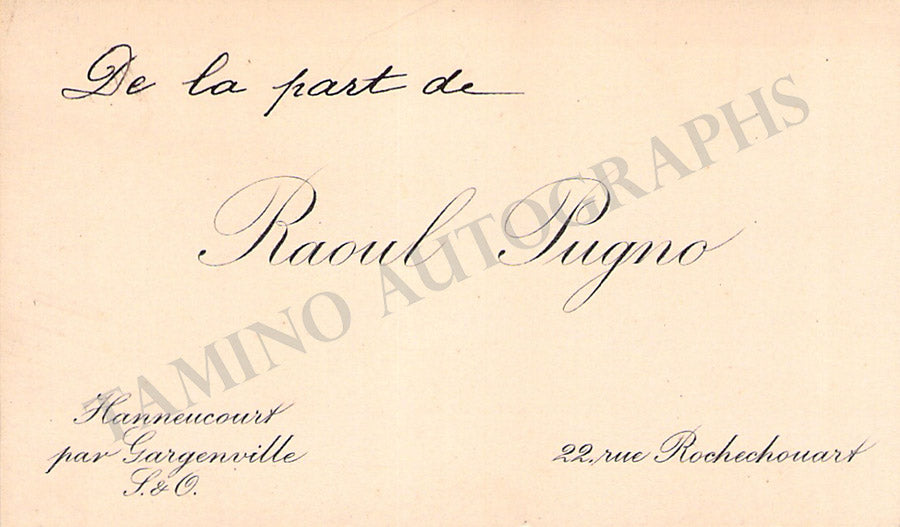 De la part de
Raoul Pugno
TAMINO AUTOGRAPHS
Hanneucourt
par Gargenville
S. & O.
22, rue Rochechouart